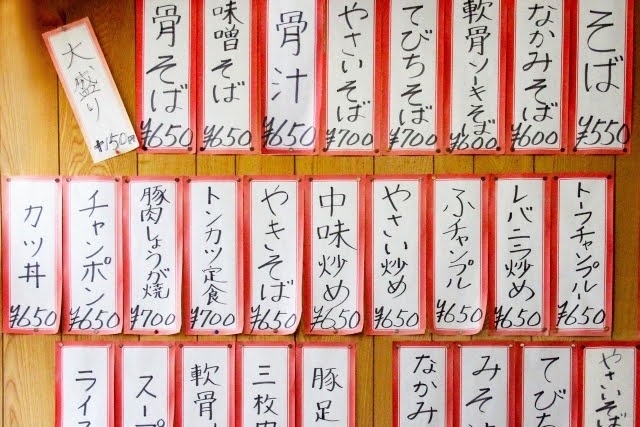 そば
¥550
なかみそば
¥600
軟骨ソーキそば
¥600
てびちそば
¥700
やさいそば
¥700
骨汁
¥650
味噌そば
¥650
骨そば
¥650
大盛り
+150円
トーフチャンプルー
¥650
レバニラ炒め
¥650
ふチャンプル
¥650
やさい炒め
¥650
中味炒め
¥650
やきそば
¥650
トンカツ定食
¥700
豚肉しょうが焼
¥700
チャンポン
¥650
カツ丼
¥650
やさいそ
てびち
みそ
なかみ
豚足
三枚
軟骨
スープ
ライス